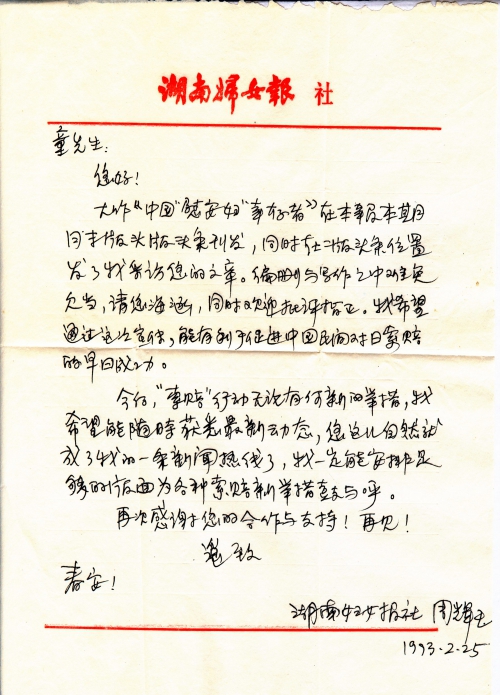 湖南婦女報 社
童先生:
您好!
大作“中国‘慰安妇’幸存者”在本报本期周
同时在二版头条位置
发了我采访您的文章。编删与写作之中难免
欠当,请您海涵,同时欢迎批评指正。我希望
通过这次宣传,能有利于促进中国民间对日索赔
的早日成功。
今后,“索赔”行动无论有何新的举措,我
希望能随时获悉最新动态,您这儿自然就
成了我的一条新闻热线了,我一定能安排足
够的版面为各种索赔新举措鼓与呼。
再次感谢您的合作与支持!再见!
邕致
春安!
湖南妇女报社 周
1993.2.25